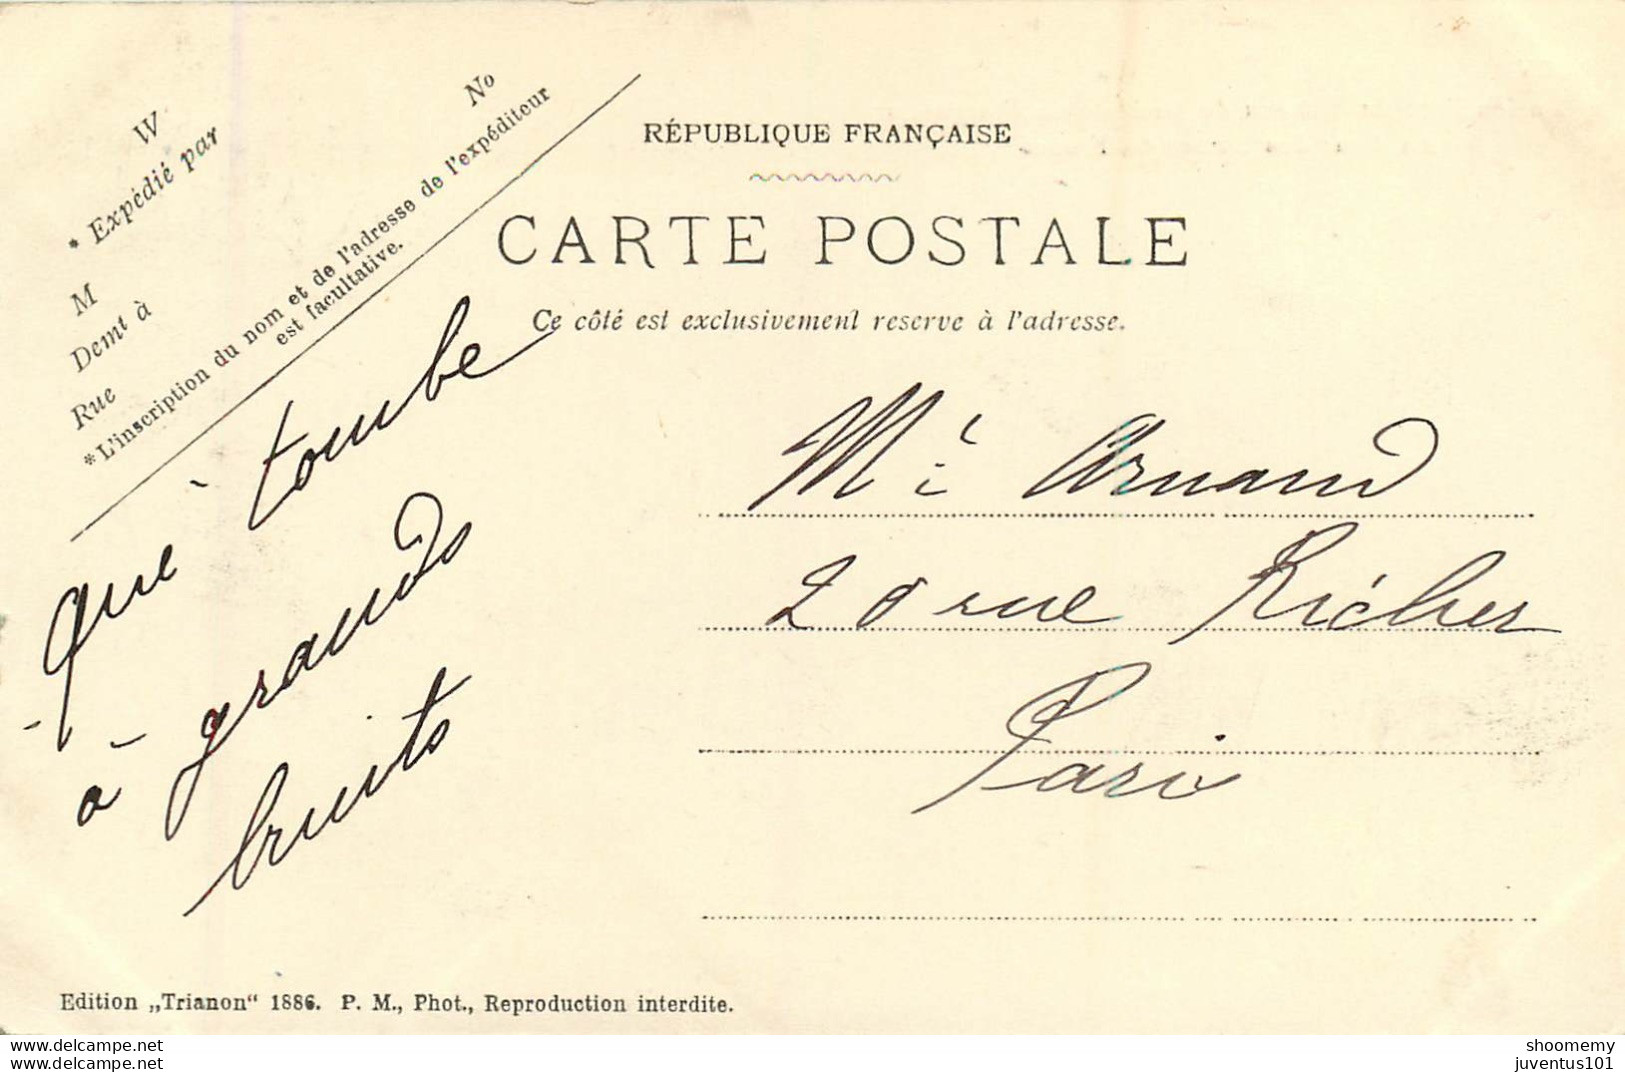 W No
* Expédié par
M
Demt à
Rue
*L'inscription du nom et de l'adresse de l'expéditeur
est facultative.
RÉPUBLIQUE FRANÇAISE
CARTE POSTALE
Ce côté est exclusivement reserve à l'adresse.
que tombe
à grands
bruits
Arnaud
20 rue Richer
Paris
Edition „Trianon“ 1886. P. M., Phot., Reproduction interdite.
www.delcampe.net
www.delcampe.net
shoomemy
juventus101